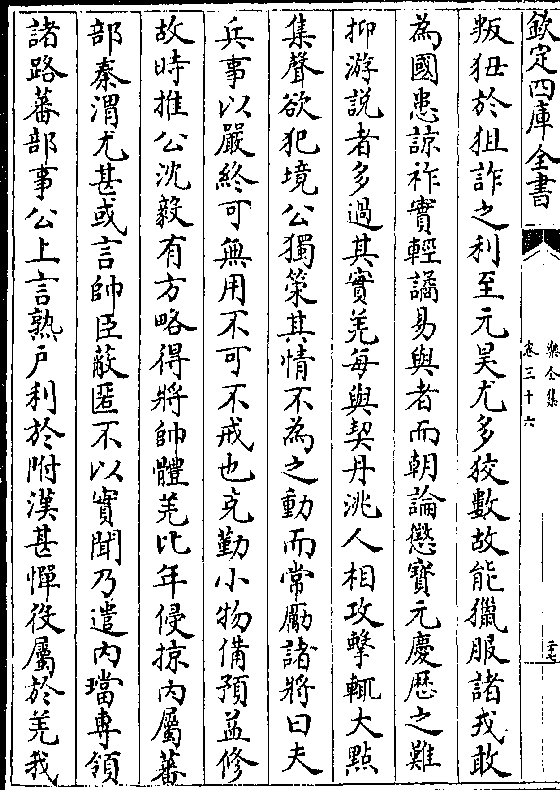 欽定四庫全書
樂全集
卷三十六
叛狃於狙詐之利至元昊尤多狡數故能獵服諸戎敢
為國患諒祚實輕譎易與者而朝論懲寳元慶厯之難
抑游説者多過其實羌每與契丹洮人相攻擊輒大點
集聲欲犯境公獨策其情不為之動而常勵諸將曰夫
兵事以嚴終可無用不可不戒也克勤小物備預益修
故時推公沈毅有方略得將帥體羌比年侵掠内屬蕃
部秦渭尤甚或言帥臣蔽匿不以實聞乃遣内璫專領
諸路蕃部事公上言熟户利於附漢甚憚役屬於羌我